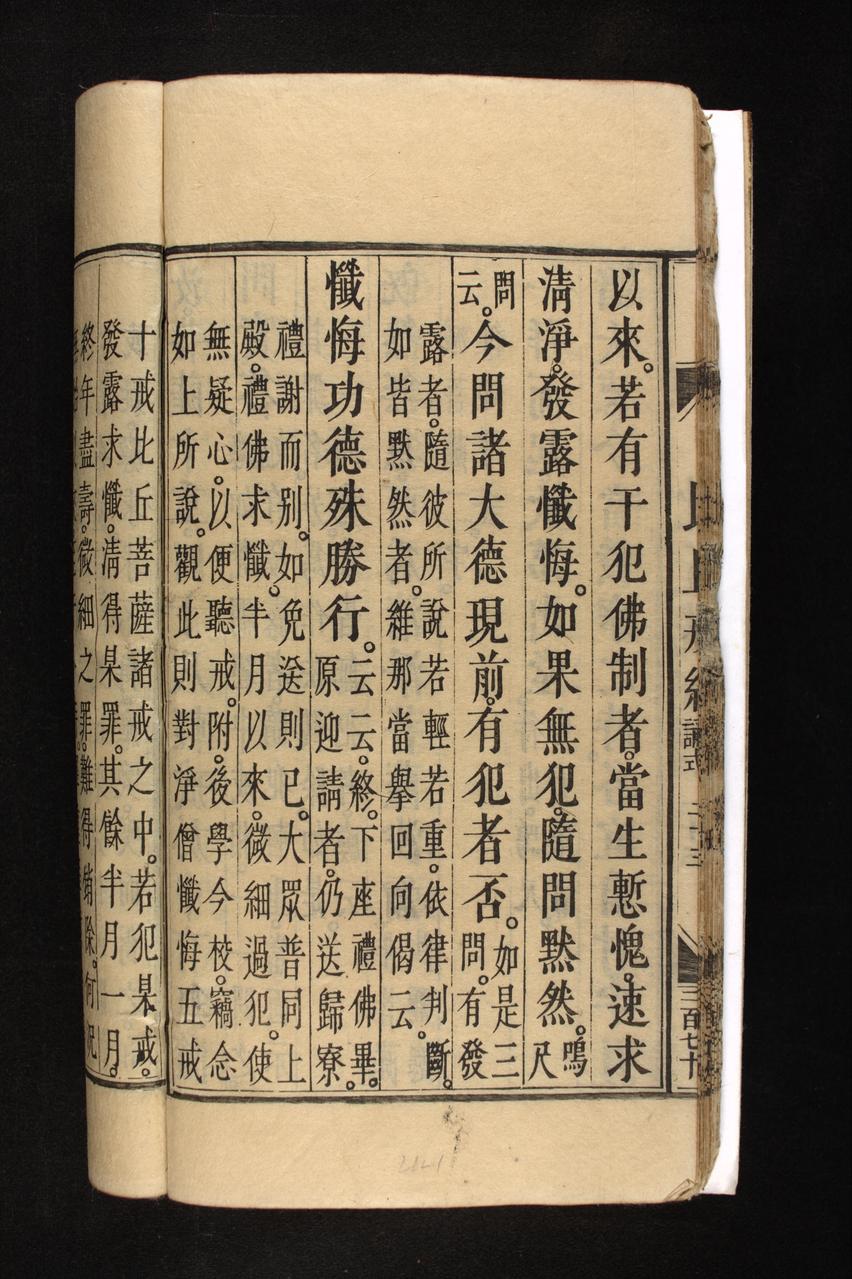 以來。若有干犯佛制者。當生慙愧。速求
清淨。發露懺悔。如果無犯。隨問默然。鳴
尺
問
云。今問諸大德現前。有犯者否。如是三
問。有發
露者。隨彼所說若輕若重。依律判斷。
如皆默然者。維那當舉回向偈云。
懺悔功德殊勝行。云云。終。下座禮佛畢。
原迎請者。仍送歸寮。
禮謝而別。如免送則已。大眾普同上
殿。禮佛求懺。半月以來。微細過犯。使
無疑心。以便聽戒。附。後學今校。竊念
如上所說。觀此則對淨僧懺悔五戒
十戒比丘菩薩諸戒之中。若犯杲戒。
發露求懺。清得杲罪。其餘半月一月。
終年盡壽。微細之罪。難得除。何況
二十三
三百七十